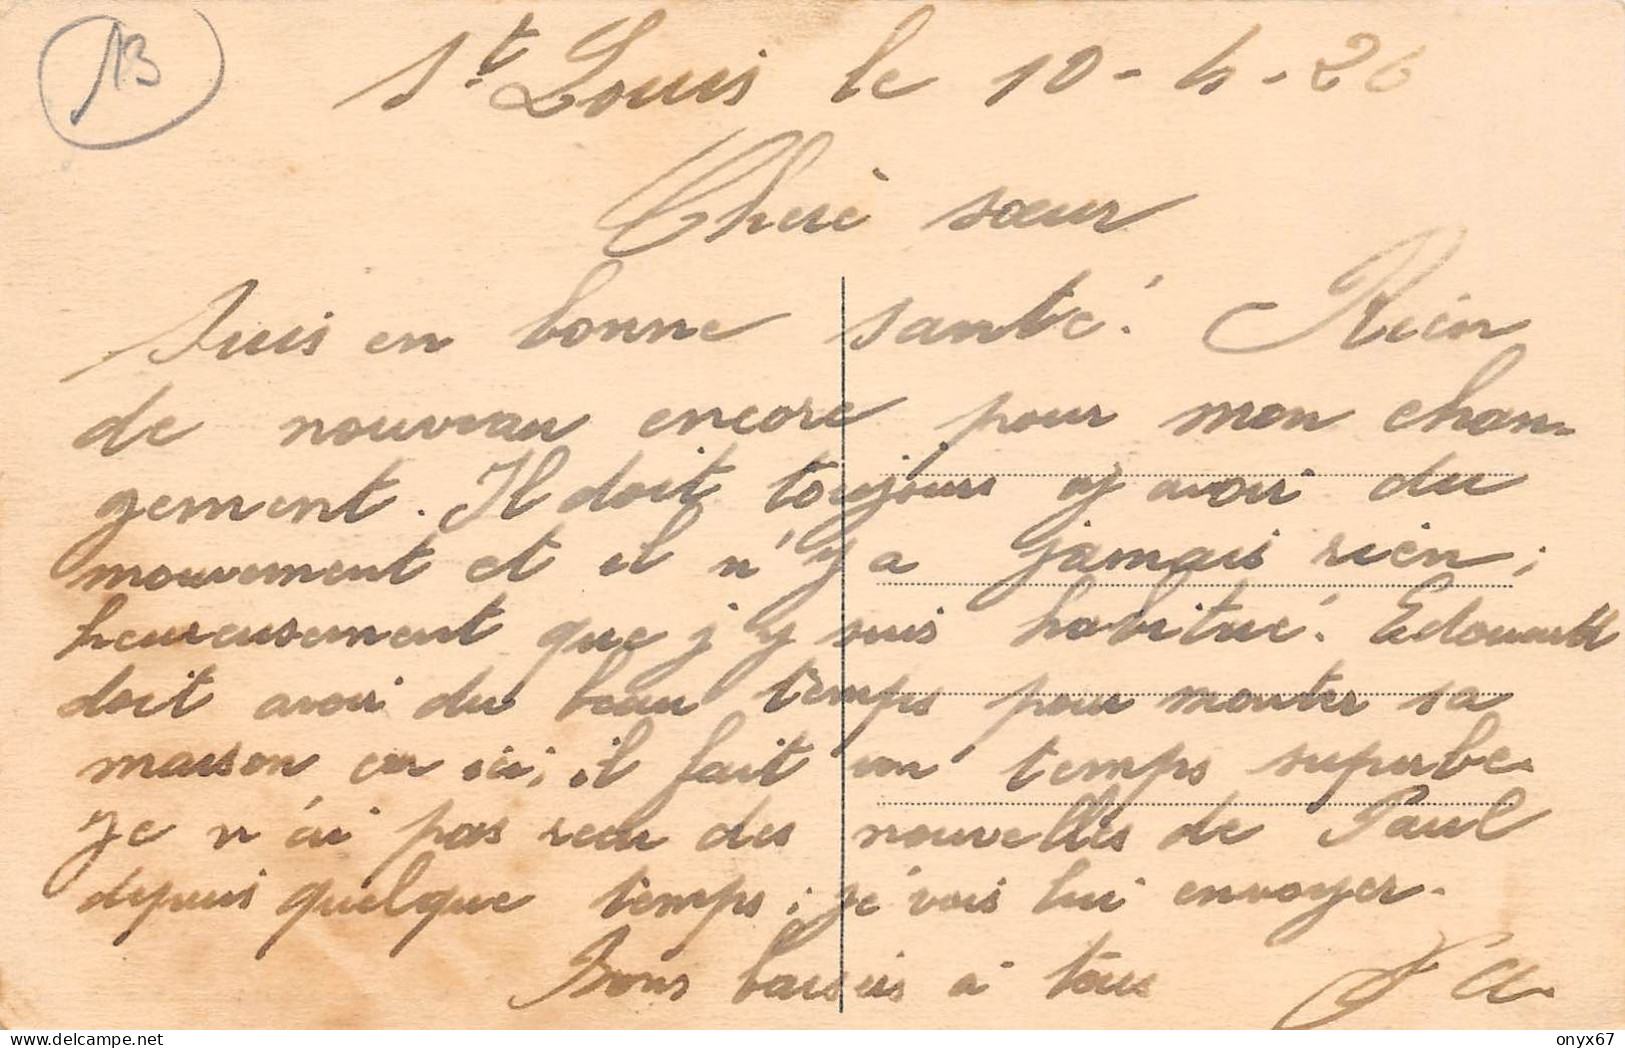 13
St Louis le 10-4-26
Chère sœur
Suis en bonne santé. Rien
de nouveau encore pour mon chan-
gement. Il doit toujours y avoir du
mouvement et il n'y a jamais rien;
heureusement que j'y suis habitué. Edouard
doit avoir du beau temps pour monter sa
maison car ici, il fait un temps superbe.
Je n'ai pas reçu des nouvelles de Paul
depuis quelque temps; je vais lui envoyer.
Bons baisers à tous
www.delcampe.net
onyx67